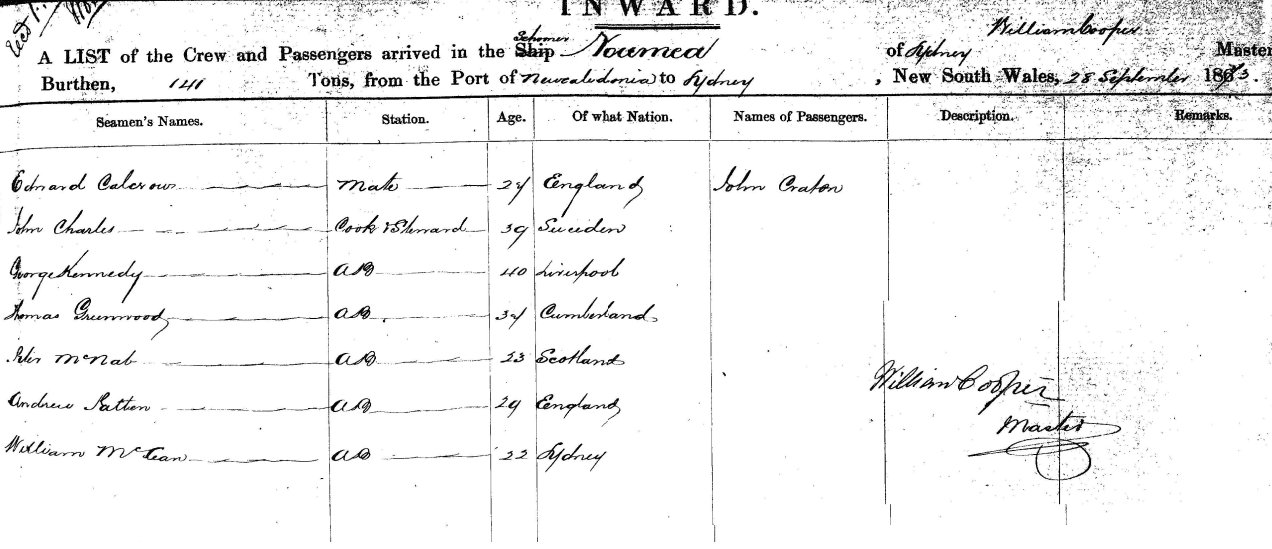 INWARD.
Schooner
William Cooper
A LIST of the Crew and Passengers arrived in the Ship Noumea of Sydney Master
Burthen, 141 Tons, from the Port of Newcaledonia to Sydney, New South Wales, 28 September 1873.
Seamen's Names. Station. Age. Of what Nation. Names of Passengers. Description. Remarks.
Edward Calcrow Mate England John Craton
John Charles Cook & Steward 39 Sweeden
George Kennedy AB 40 Liverpool
Thomas Greenwood AB Cumberland
Peter McNab AB 23 Scotland
William Cooper
Andrew Patton AB 29 England
Master
William McLean AB 22 Sydney